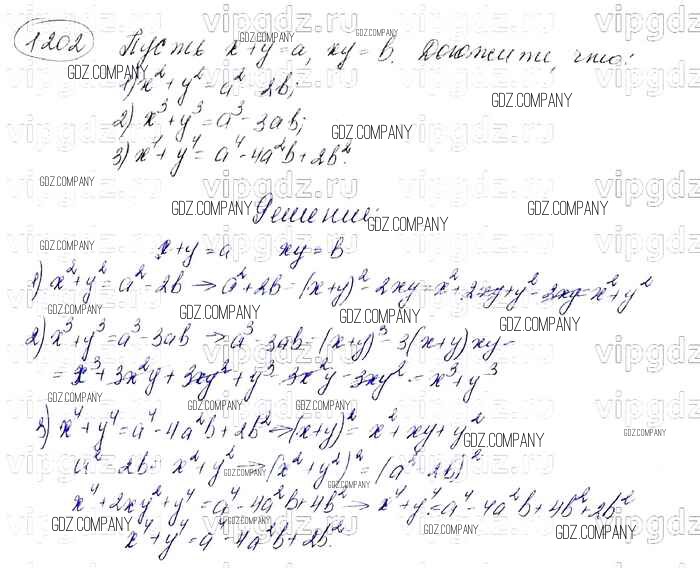 1202 Пусть x+y=a, xy=b. Докажите, что:
1) x²+y²=a²-2b;
2) x³+y³=a³-3ab;
3) x⁴+y⁴=a⁴-4a²b+2b².
Решение:
x+y=a xy=b
1) x²+y²=a²-2b → a²+2b=(x+y)²-2xy=x²+2xy+y²-2xy=x²+y²
2) x³+y³=a³-3ab → a³-3ab=(x+y)³-3(x+y)xy-
=x³+3x²y+3xy²+y³-3x²y-3xy²-x³+y³
3) x⁴+y⁴=a⁴-4a²b+2b² → (x+y)²=x²+xy+y²
a²-2b= x²+y² → (x²+y²)²=(a²-2b)²
x⁴+2xy²+y⁴=a⁴-4a²b+4b² → x⁴+y⁴=a⁴-4a²b+4b²+2b²
x⁴+y⁴=a⁴-4a²b+2b².